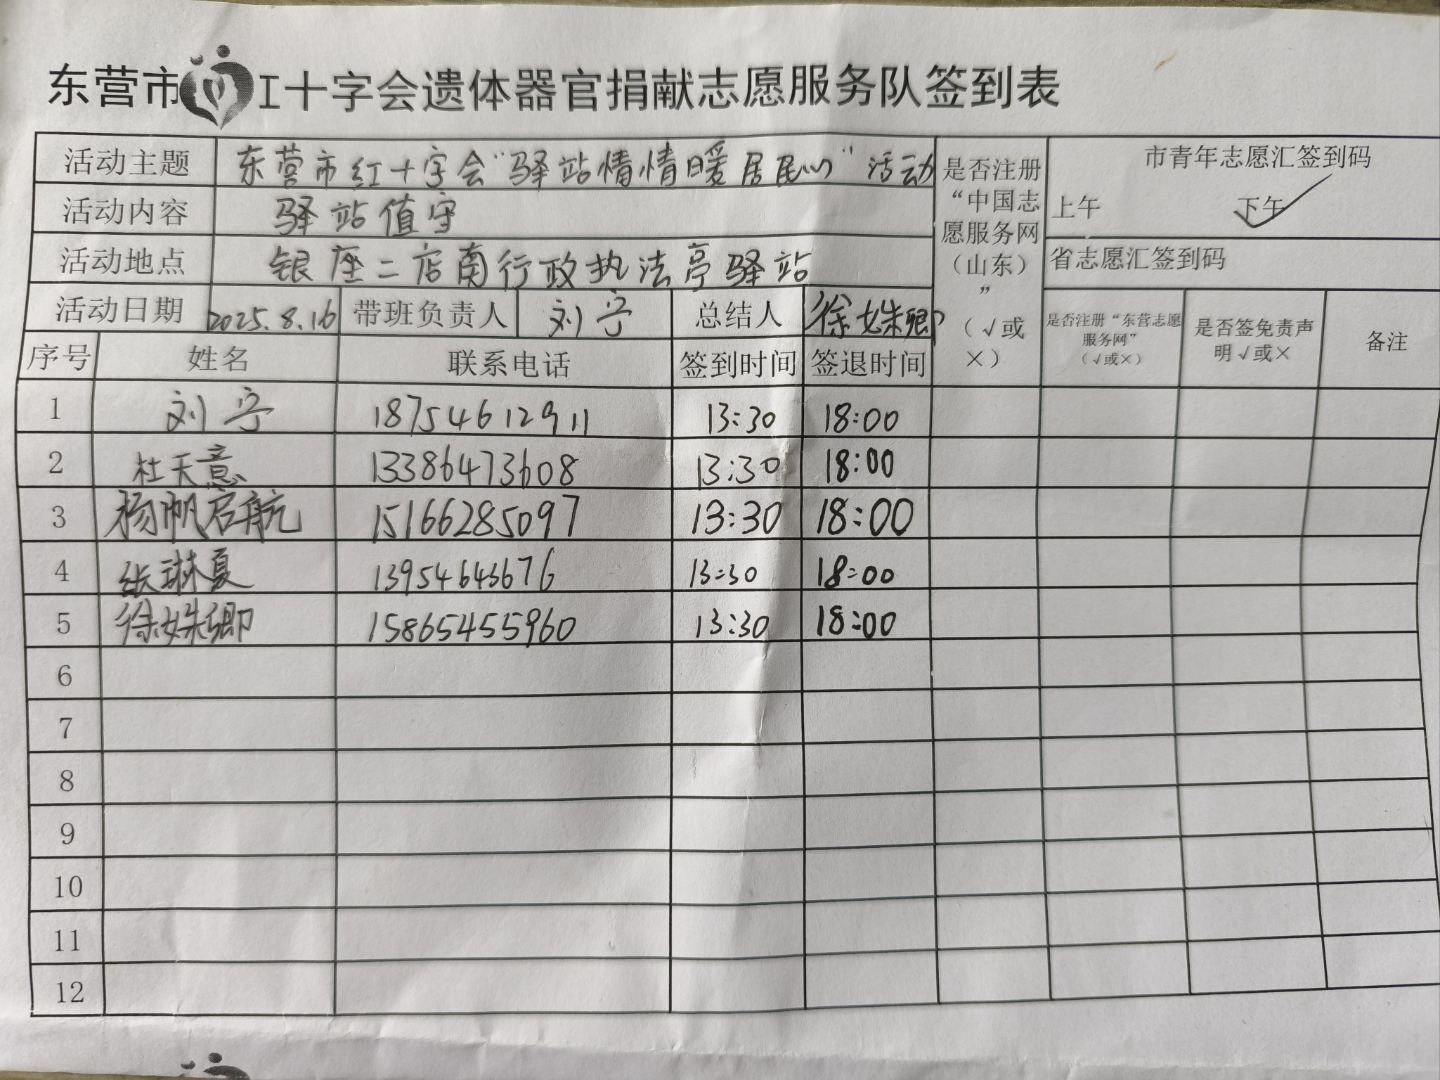 东营市工十字会遗体器官捐献志愿服务队签到表
活动主题 东营市红十字会“驿站情情暖居民心”活动
活动内容 驿站值守
活动地点 银座二店南行政执法亭驿站
活动日期 2025.8.16 带班负责人 刘宁 总结人 徐姝卿
是否注册
“中国志
愿服务网
（山东）
”
（√或
×）
市青年志愿汇签到码
上午 下午 ✓
省志愿汇签到码
序号 姓名 联系电话 签到时间 签退时间
是否注册“东营志愿
服务网”
（√或×）
是否签免责声
明√或×
备注
1 刘宁 18754612911 13:30 18:00
2 杜天意 13386473608 13:30 18:00
3 杨帆启航 15166285097 13:30 18:00
4 张琳夏 13954643676 13:30 18:00
5 徐姝卿 15865455960 13:30 18:00
6
7
8
9
10
11
12